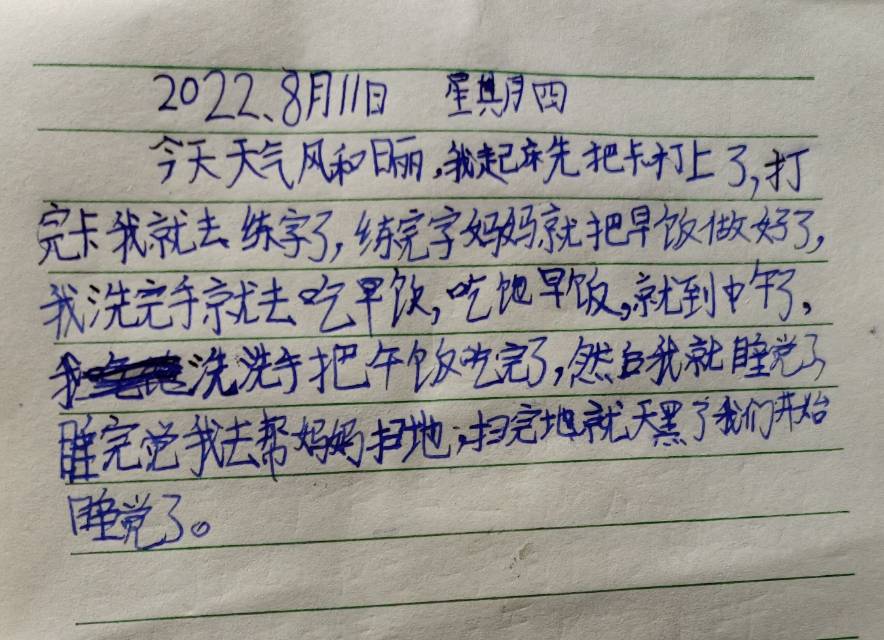 2022、8月11日 星期四
今天天气风和日丽,我起床先把卡打上了,打
完卡我就去练字了,练完字妈妈就把早饭做好了,
我洗完手就去吃早饭,吃饱早饭,就到中午了,
我洗洗手把午饭吃完了,然后我就睡觉了
睡完觉我去帮妈妈扫地,扫完地就天黑了我们开始
睡觉了。